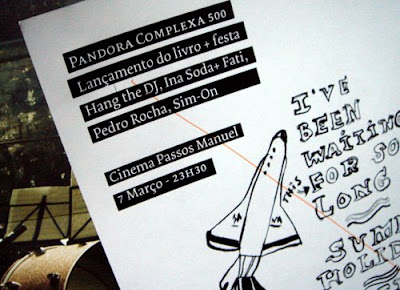 PANDORA COMPLEXA 500
Lançamento do livro + festa
Hang the DJ, Ina Soda+ Fati,
Pedro Rocha, Sim-On
Cinema Passos Manuel
7 Março - 23H30
I'VE
BEEN
WAITING
THIS
FOR SO
LONG